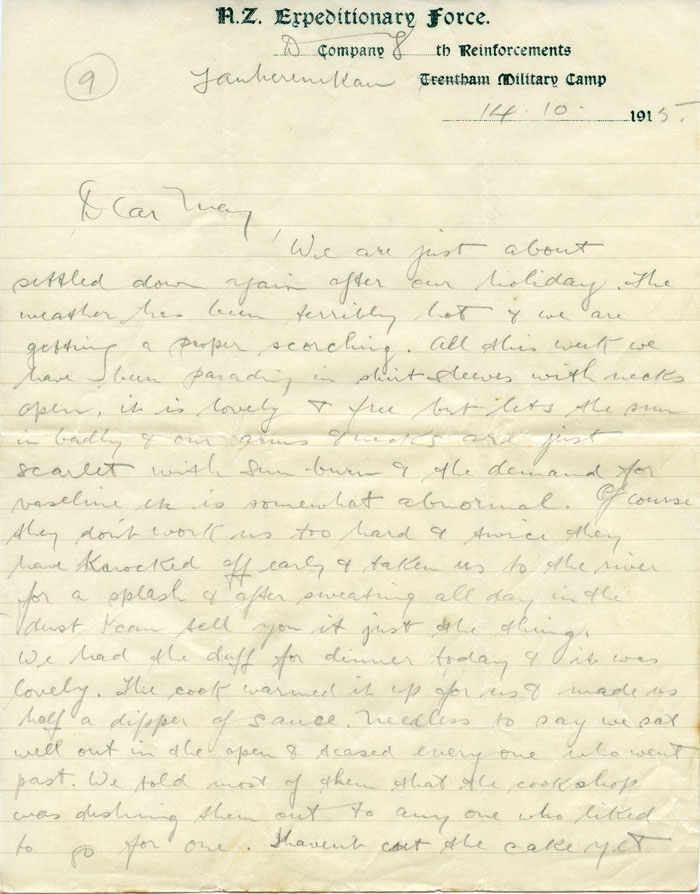 N.Z. Expeditionary Force.
D Company 8 th Reinforcements
9
Tauherenikau Trentham Military Camp
14. 10. 1915.
Dear May
We are just about
settled down again after our holiday. The
weather has been terribly hot & we are
getting a proper scorching. All this week we
have been parading in shirt sleeves with necks
open, it is lovely & free but lets the sun
in badly & our arms & necks are just
scarlet with sun burn & the demand for
vaseline is somewhat abnormal. Of course
they don't work us too hard & twice they
have knocked off early & taken us to the river
for a splash & after sweating all day in the
dust I can tell you it just the thing.
We had the duff for dinner today & it was
lovely. The cook warmed it up for us & made us
half a dipper of sauce. Needless to say we sat
well out in the open & teased every one who went
past. We told most of them that the cookshop
was dishing them out to any one who liked
to go for one. I havent cut the cake yet